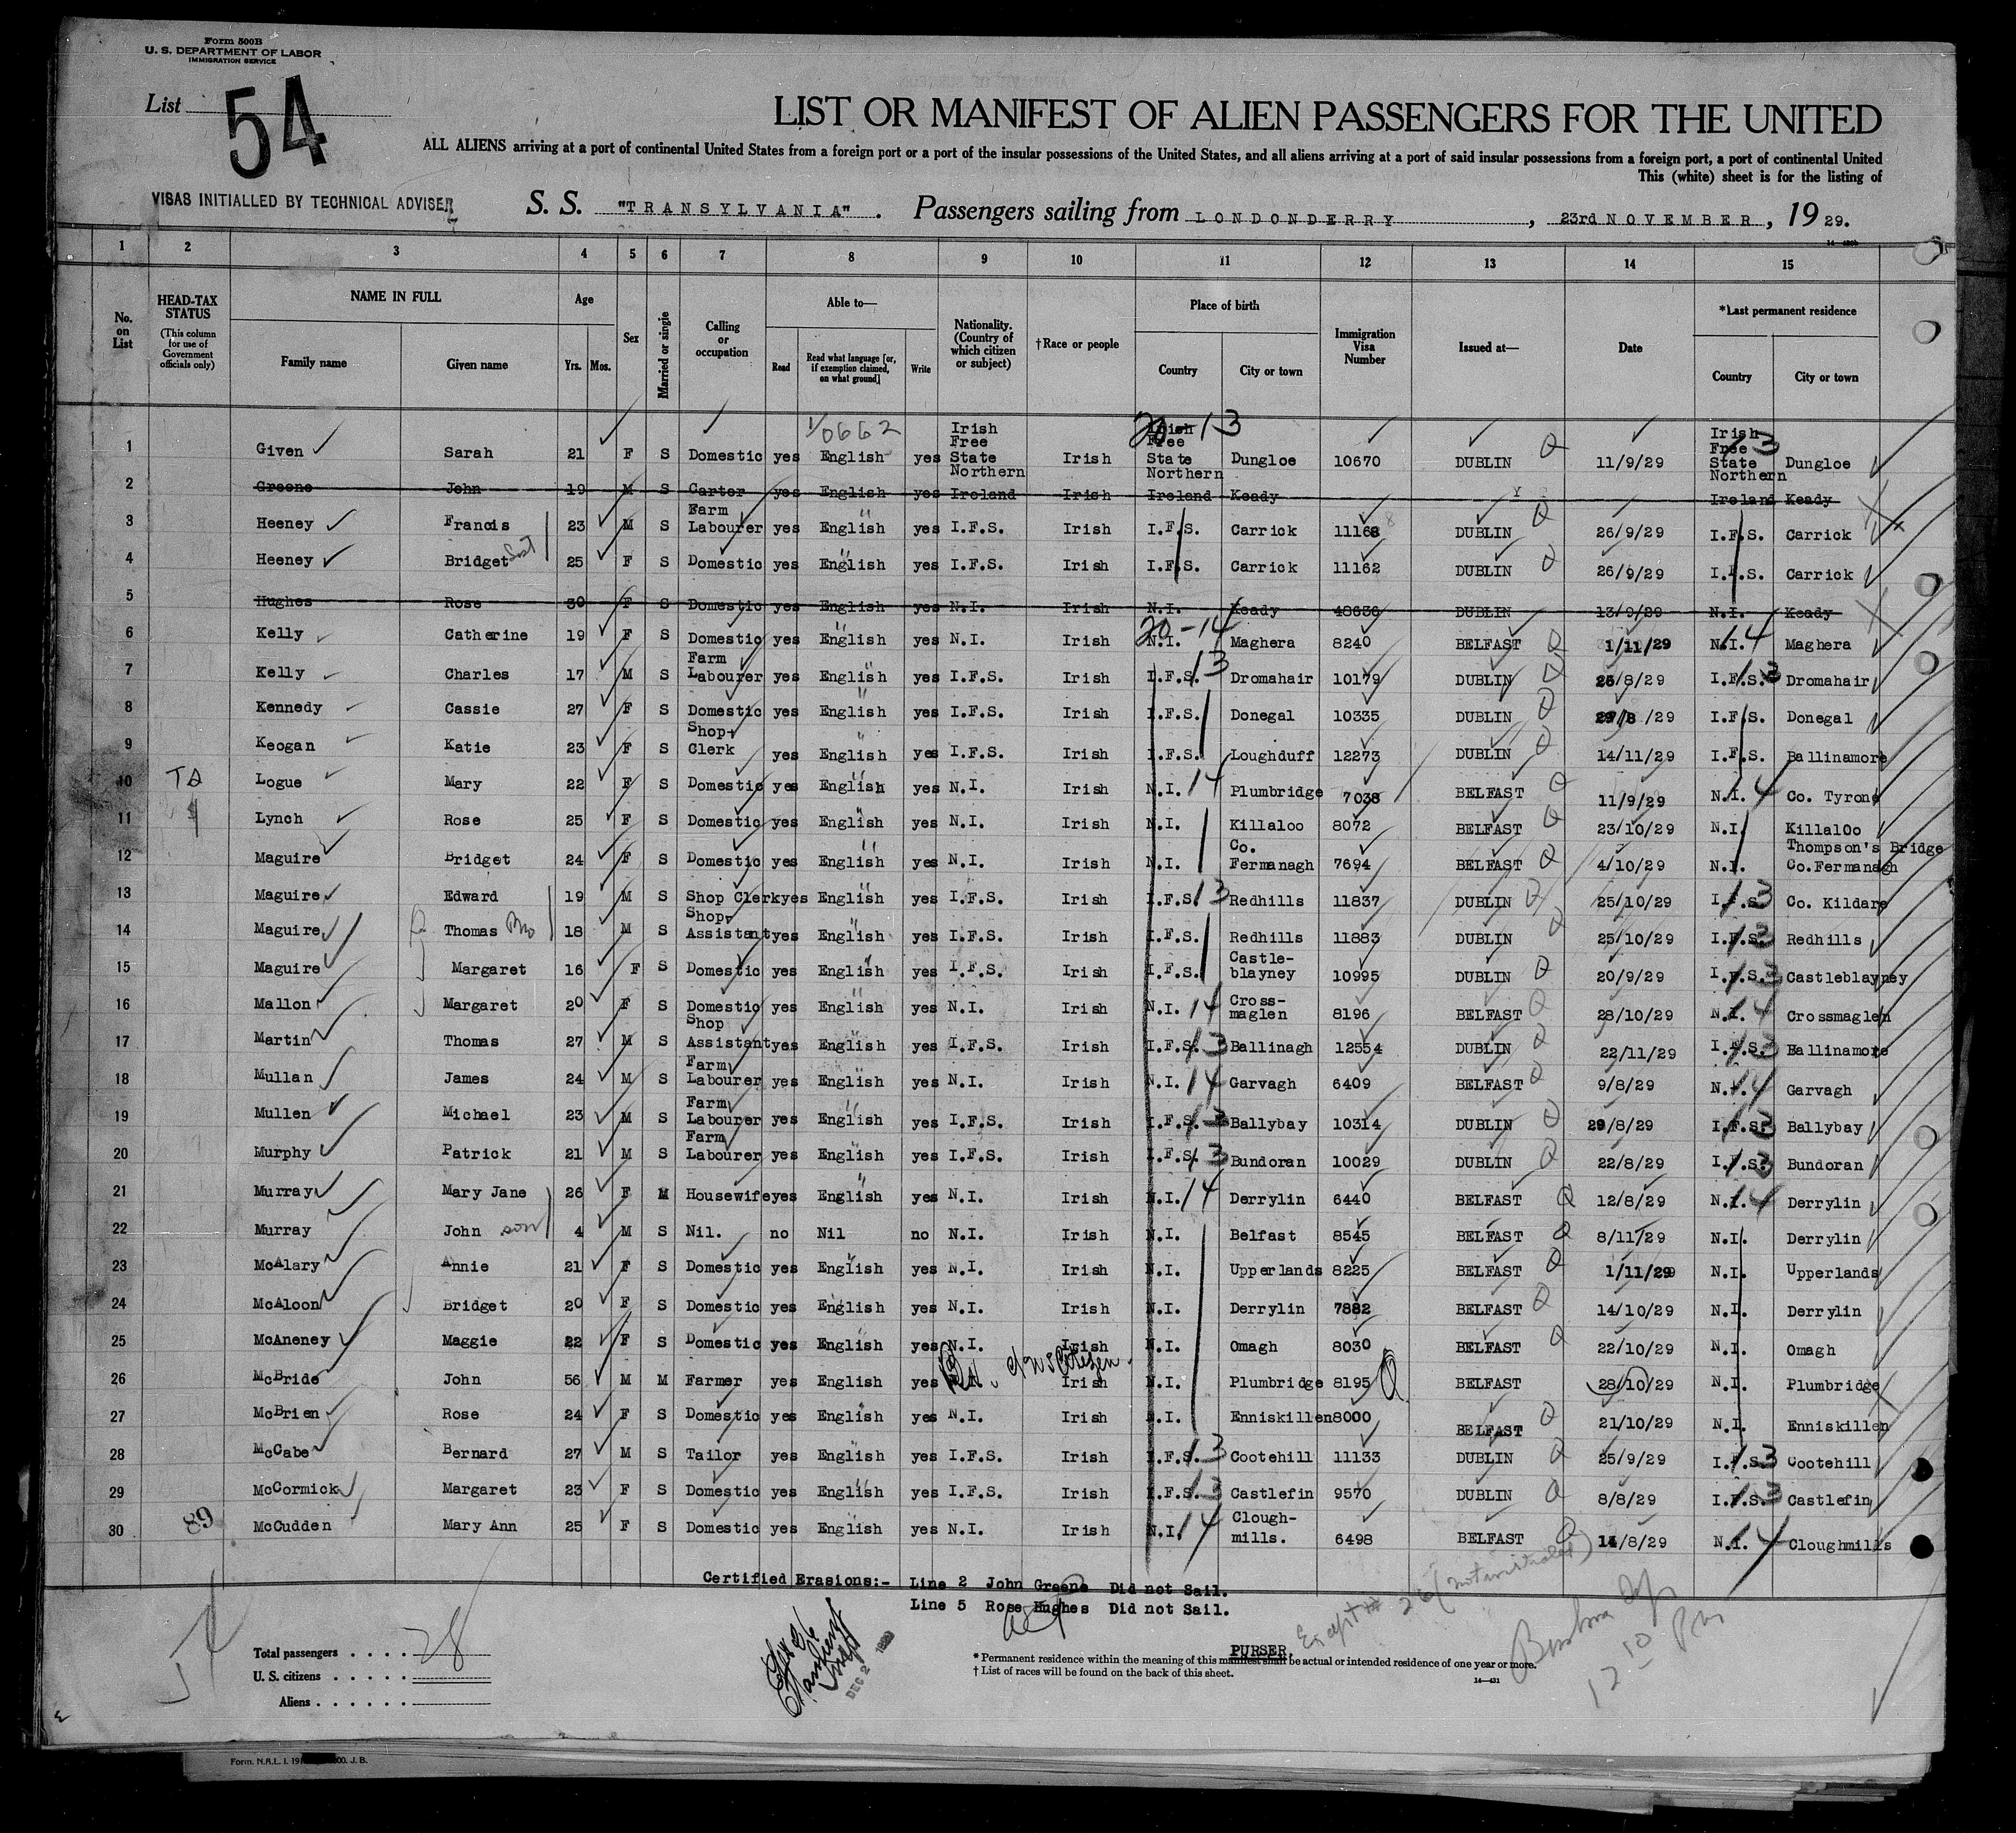 Form 500B
U. S. DEPARTMENT OF LABOR
IMMIGRATION SERVICE
List 54
LIST OR MANIFEST OF ALIEN PASSENGERS FOR THE UNITED
ALL ALIENS arriving at a port of continental United States from a foreign port or a port of the insular possessions of the United States, and all aliens arriving at a port of said insular possessions from a foreign port, a port of continental United
This (white) sheet is for the listing of
VISAS INITIALLED BY TECHNICAL ADVISER
S. S. "TRANSYLVANIA". Passengers sailing from LONDONDERRY, 23rd NOVEMBER, 1929.
1 2 3 4 5 6 7 8 9 10 11 12 13 14 15
No. on List
HEAD-TAX STATUS (This column for use of Government officials only)
NAME IN FULL Family name Given name
Age Yrs. Mos.
Sex
Married or single
Calling or occupation
Able to— Read Read what language [or, if exemption claimed, on what ground] Write
Nationality. (Country of which citizen or subject)
†Race or people
Place of birth Country City or town
Immigration Visa Number
Issued at—
Date
*Last permanent residence Country City or town
20-13
1 Given Sarah 21 F S Domestic yes English yes Irish Free State Irish Irish Free State Dungloe 10670 DUBLIN 11/9/29 Irish Free State Dungloe
2 Greene John 19 M S Carter yes English yes Northern Ireland Irish Northern Ireland Keady Northern Ireland Keady
3 Heeney Francis 23 M S Farm Labourer yes English yes I.F.S. Irish I.F.S. Carrick 11168 DUBLIN 26/9/29 I.F.S. Carrick
4 Heeney Bridget 25 F S Domestic yes English yes I.F.S. Irish I.F.S. Carrick 11162 DUBLIN 26/9/29 I.F.S. Carrick
5 Hughes Rose 30 F S Domestic yes English yes N.I. Irish N.I. Keady 48636 DUBLIN 13/9/29 N.I. Keady
20-14
6 Kelly Catherine 19 F S Domestic yes English yes N.I. Irish N.I. Maghera 8240 BELFAST 1/11/29 N.I. 14 Maghera
7 Kelly Charles 17 M S Farm Labourer yes English yes I.F.S. Irish I.F.S. 13 Dromahair 10179 DUBLIN 26/8/29 I.F.S. 13 Dromahair
8 Kennedy Cassie 27 F S Domestic yes English yes I.F.S. Irish I.F.S. Donegal 10335 DUBLIN 29/8/29 I.F.S. Donegal
9 Keogan Katie 23 F S Shop Clerk yes English yes I.F.S. Irish I.F.S. Loughduff 12273 DUBLIN 14/11/29 I.F.S. Ballinamore
10 Logue Mary 22 F S Domestic yes English yes N.I. Irish N.I. 14 Plumbridge 7038 BELFAST 11/9/29 N.I. 14 Co. Tyrone
11 Lynch Rose 25 F S Domestic yes English yes N.I. Irish N.I. Killaloo 8072 BELFAST 23/10/29 N.I. Killaloo
12 Maguire Bridget 24 F S Domestic yes English yes N.I. Irish N.I. Co. Fermanagh 7694 BELFAST 4/10/29 N.I. Thompson's Bridge Co.Fermanagh
13 Maguire Edward 19 M S Shop Clerk yes English yes I.F.S. Irish I.F.S. 13 Redhills 11837 DUBLIN 25/10/29 I.F.S. 13 Co. Kildare
14 Maguire Thomas Bro 18 M S Shop Assistant yes English yes I.F.S. Irish I.F.S. Redhills 11883 DUBLIN 25/10/29 I.F.S. 13 Redhills
15 Maguire Margaret 16 F S Domestic yes English yes I.F.S. Irish I.F.S. Castle-blayney 10995 DUBLIN 20/9/29 I.F.S. 13 Castleblayney
16 Mallon Margaret 20 F S Domestic yes English yes N.I. Irish N.I. 14 Cross-maglen 8196 BELFAST 28/10/29 N.I. 14 Crossmaglen
17 Martin Thomas 27 M S Shop Assistant yes English yes I.F.S. Irish I.F.S. 13 Ballinagh 12554 DUBLIN 22/11/29 I.F.S. 13 Ballinamore
18 Mullan James 24 M S Farm Labourer yes English yes N.I. Irish N.I. 14 Garvagh 6409 BELFAST 9/8/29 N.I. 14 Garvagh
19 Mullen Michael 23 M S Farm Labourer yes English yes I.F.S. Irish I.F.S. 13 Ballybay 10314 DUBLIN 29/8/29 I.F.S. 13 Ballybay
20 Murphy Patrick 21 M S Farm Labourer yes English yes I.F.S. Irish I.F.S. 13 Bundoran 10029 DUBLIN 22/8/29 I.F.S. 13 Bundoran
21 Murray Mary Jane 26 F M Housewife yes English yes N.I. Irish N.I. 14 Derrylin 6440 BELFAST 12/8/29 N.I. 14 Derrylin
22 Murray John son 4 M S Nil. no Nil no N.I. Irish N.I. Belfast 8545 BELFAST 8/11/29 N.I. Derrylin
23 McAlary Annie 21 F S Domestic yes English yes N.I. Irish N.I. Upperlands 8225 BELFAST 1/11/29 N.I. Upperlands
24 McAloon Bridget 20 F S Domestic yes English yes N.I. Irish N.I. Derrylin 7882 BELFAST 14/10/29 N.I. Derrylin
25 McAneney Maggie 22 F S Domestic yes English yes N.I. Irish N.I. Omagh 8030 BELFAST 22/10/29 N.I. Omagh
26 McBride John 56 M M Farmer yes English yes Irish N.I. Plumbridge 8195 BELFAST 28/10/29 N.I. Plumbridge
27 McBrien Rose 24 F S Domestic yes English yes N.I. Irish N.I. Enniskillen 8000 BELFAST 21/10/29 N.I. Enniskillen
28 McCabe Bernard 27 M S Tailor yes English yes I.F.S. Irish I.F.S. 13 Cootehill 11133 DUBLIN 25/9/29 I.F.S. 13 Cootehill
29 McCormick Margaret 23 F S Domestic yes English yes I.F.S. Irish I.F.S. 13 Castlefin 9570 DUBLIN 8/8/29 I.F.S. 13 Castlefin
30 89 McCudden Mary Ann 25 F S Domestic yes English yes N.I. Irish N.I. 14 Clough-mills. 6498 BELFAST 14/8/29 N.I. 14 Cloughmills
Certified Erasions:- Line 2 John Greene Did not Sail.
Line 5 Rose Hughes Did not Sail.
PURSER.
Total passengers . . . . 28
U. S. citizens . . . .
Aliens . . . . . .
DEC 2
* Permanent residence within the meaning of this manifest shall be actual or intended residence of one year or more.
† List of races will be found on the back of this sheet.
14—431
Except 26